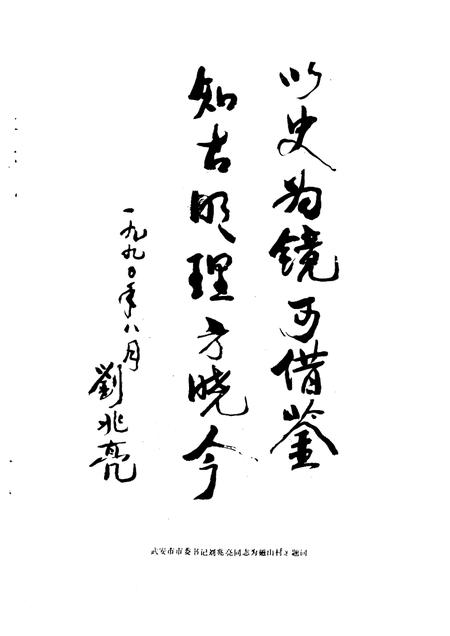 以史为镜可借鉴
知古明理方晓今
一九九〇年八月
劉兆亮
武安市市委书记刘兆亮同志为磁山村志题词